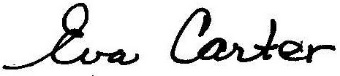 Eva Carter